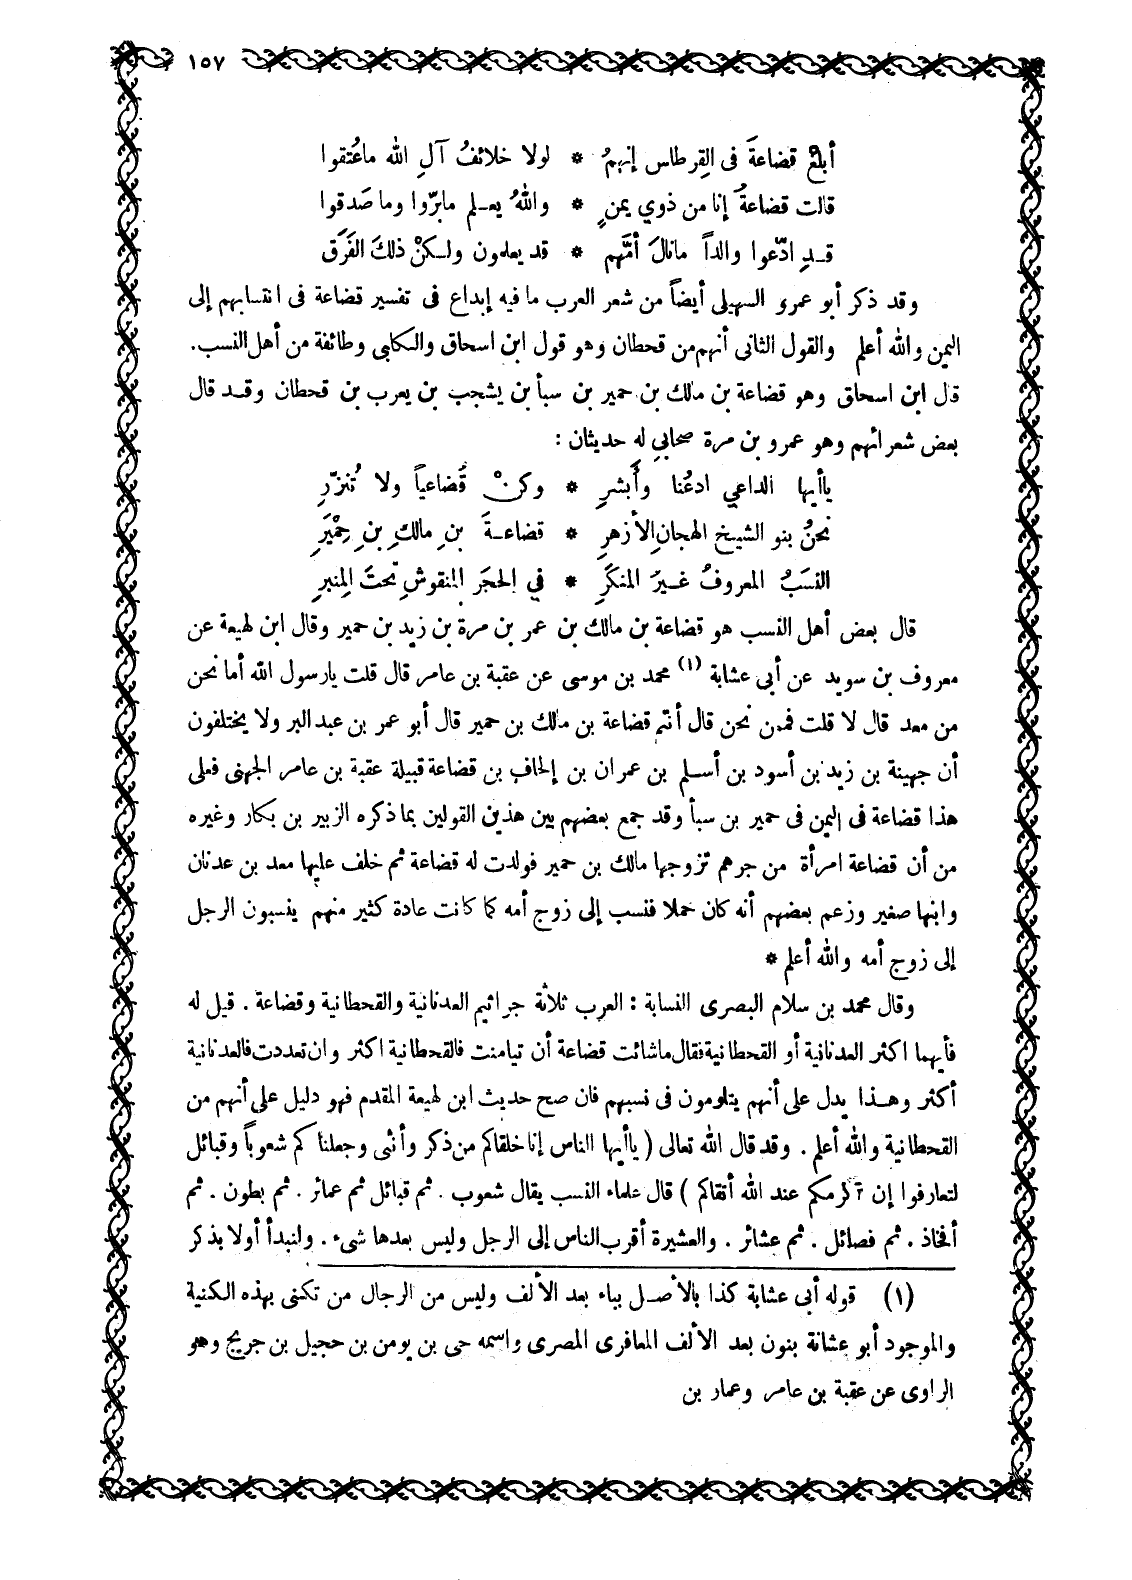 ١٥٧
أبلغْ قضاعةَ فى القِرطاس إنهمُ * لولا خلائفُ آلِ الله ماعُتقوا
قالت قضاعةُ إنا من ذوي يمنٍ * واللهُ يعـلم مابرّوا وما صَدقوا
قـدِ ادّعوا والداً مانالَ أمَّهم * قد يعلمون ولـكنْ ذلكَ الفَرَق
وقد ذكر أبو عمرو السهيلى أيضاً من شعر العرب ما فيه إبداع فى تفسير قضاعة فى انتسابهم إلى
اليمن والله أعلم والقول الثانى أنهم من قحطان وهو قول ابن اسحاق والكلبى وطائفة من أهل النسب.
قال ابن اسحاق وهو قضاعة بن مالك بن حمير بن سبأ بن يشجب بن يعرب بن قحطان وقـد قال
بعض شعرائهم وهو عمرو بن مرة صحابي له حديثان :
ياأيها الداعي ادعُنا وأَبشرِ * وكنْ قُضاعياً ولا تُنزّرِ
نحنُ بنو الشيخ الهجانِ الأزهرِ * قضاعـةَ بنِ مالكِ بنِ حِمْيَرِ
النسَبُ المعروفُ غـيرُ المنكَرِ * في الحجَر المنقوشِ تحتَ المِنبرِ
قال بعض أهل النسب هو قضاعة بن مالك بن عمر بن مرة بن زيد بن حمير وقال ابن لهيعة عن
معروف بن سويد عن أبى عشابة (١) محمد بن موسى عن عقبة بن عامر قال قلت يارسول الله أما نحن
من معد قال لا قلت فممن نحن قال أنتم قضاعة بن مالك بن حمير قال أبو عمر بن عبد البر ولا يختلفون
أن جهينة بن زيد بن أسود بن أسـلم بن عمران بن الحاف بن قضاعة قبيلة عقبة بن عامر الجهنى فعلى
هذا قضاعة فى اليمن فى حمير بن سبأ وقد جمع بعضهم بين هذين القولين بما ذكره الزبير بن بكار وغيره
من أن قضاعة امرأة من جرهم تزوجها مالك بن حمير فولدت له قضاعة ثم خلف عليها معد بن عدنان
وابنها صغير وزعم بعضهم أنه كان حملا فنسب إلى زوج أمه كما كانت عادة كثير منهم ينسبون الرجل
إلى زوج أمه والله أعلم *
وقال محمد بن سلام البصرى النسابة : العرب ثلاثة جراثيم العدنانية والقحطانية وقضاعة . قيل له
فأيهما اكثر العدنانية أو القحطانية فقال ماشائت قضاعة أن تيامنت فالقحطانية اكثر وان تعددت فالعدنانية
أكثر وهـذا يدل على أنهم يتلومون فى نسبهم فان صح حديث ابن لهيعة المقدم فهو دليل على أنهم من
القحطانية والله أعلم . وقد قال الله تعالى ( ياأيها الناس إنا خلقاكم من ذكر وأنثى وجعلناكم شعوباً وقبائل
لتعارفوا إن اكرمكم عند الله أتقاكم ) قال علماء النسب يقال شعوب . ثم قبائل ثم عمائر . ثم بطون . ثم
أفخاذ . ثم فصائل . ثم عشائر . والعشيرة أقرب الناس إلى الرجل وليس بعدها شىء . ولنبدأ أولا بذكر
(١) قوله أبى عشابة كذا بالأصـل بباء بعد الألف وليس من الرجال من تكنى بهذه الكنية
والموجود أبو عشانة بنون بعد الألف المعافرى المصرى واسمه حى بن يومن بن حجيل بن جريج وهو
الراوى عن عقبة بن عامر وعمار بن